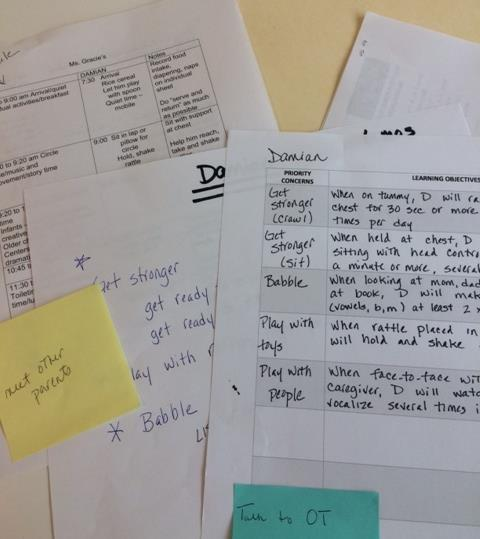 Ms. Gracie's
DAMIAN
Notes
to 9:00 am Arrival/quiet
dual activities/breakfast
7:30 Arrival
Rice cereal
Let him play
with spoon
Quiet time –
mobile
Record food
intake,
diapering, naps
on individual
sheet
Do "serve and
return" as much
as possible
to 9:20 am Circle
me/music and
movement/story time
9:00 Sit in lap or
pillow for
circle
Hold, shake
rattle
Sit with support
at chest
Help him reach,
take and shake
9:20 to 1
time
Infants
creative
Older c
Centers
dramati
10:45 t
11:30 t
Toileti
time/lu
Da
*
Get stronger
get ready
get ready
Play with
* Babble
meet other
parents
Damian
PRIORITY
CONCERNS
LEARNING OBJECTIVES
Get
stronger
(crawl)
When on tummy, D will ra
chest for 30 sec or more
times per day
Get
stronger
(sit)
When held at chest, D
sitting with head contro
a minute or more, several
Babble
When looking at mom, dad
at book, D will mak
(vowels, b, m) at least 2 x
Play with
toys
When rattle placed in
will hold and shake
Play with
people
When face-to-face wit
caregiver, D will watc
vocalize several times i
Talk to OT